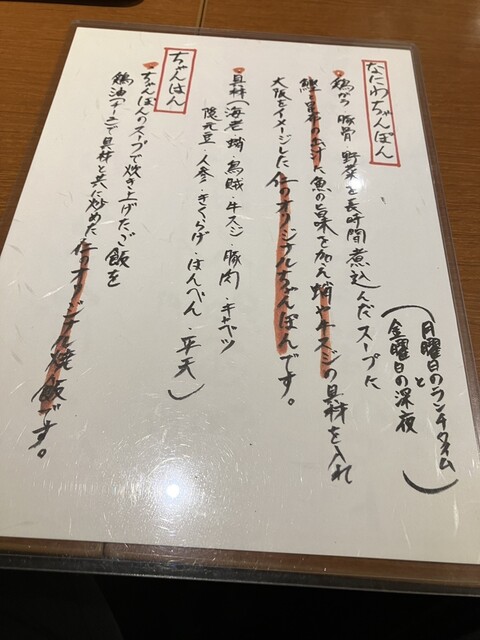 なにわちゃんぽん
（月曜日のランチタイム
と
金曜日の深夜）
鶏がら・豚骨・野菜を長時間煮込んだスープに
鰹と昆布の出汁に魚の旨味を加え蛸や牛スジの具材を入れ
大阪をイメージした仁のオリジナルちゃんぽんです。
具材（海老・蛸・烏賊・牛スジ・豚肉・キャベツ
隠元豆・人参・きくらげ・はんぺん・平天）
ちゃんはん
ちゃんぽんのスープで炊き上げたご飯を
鶏油（チーユ）で具材と共に炒めた仁のオリジナル焼飯です。